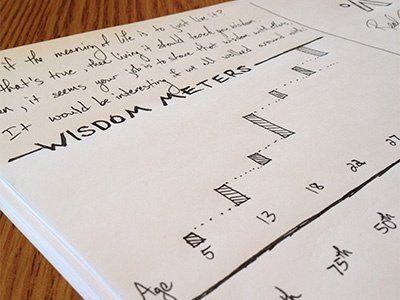 if the meaning of life is to just live it?
that's true, then living it should teach you wisdom
it seems your job is to share that wisdom with others
It would be interesting if we all walked around with
WISDOM METERS
Age 5 13 18 22 27
75th 50th